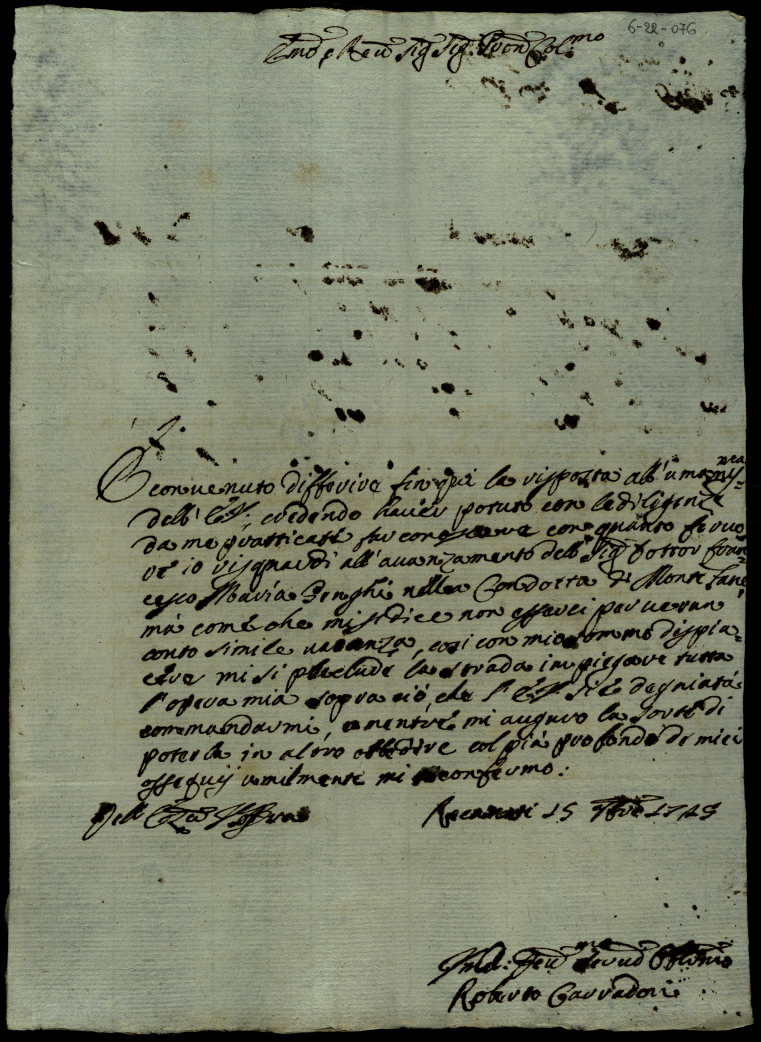 6-22-076
Emo e Reu Sig Sig Pron Colmo
È conuenuto differire fin qui la risposta all'umanma
dell' E V, credendo hauer potuto con le diligenze
da me pratticate far conoscere con quanto feruo
re io risguardi all'auanzamento del Sig Dottor Fran
cesco Maria Benghi nella Condotta di Monte Fano
mà come che mi si dice non esserci per uerun
conto simile uacanza, così con mio sommo dispia=
cere mi si preclude la strada impiegare tutta
l'opera mia sopra ciò, che l' E V si è degniata
commandarmi, e mentre mi auguro la sorte di
poterla in altro obbedire col più profondo de miei
ossequij umilmente mi confermo:
Dell Eza Vostra
Recanati 15 1743
Umil: deuu Obblmo
Roberto Carradori